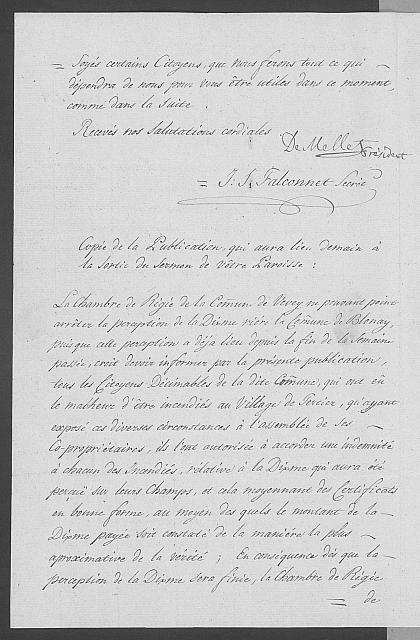 = Soyés certains Citoyens, que nous ferons tout ce qui -
dépendra de nous pour vous être utiles dans ce moment,
comme dans la Suite.
Recevés nos Salutations cordiales
De Mellet Président
= J: J. Falconnet Secrre
Copie de la Publication, qui aura lieu demain à
la Sortie du Sermon de vôtre Paroisse:
La Chambre de Régie de la Comune de Vevey ne pouvant point
arrêter la perception de la Dixme rière la Comune de Blonay,
puis que cette perception a déja lieu depuis la fin de la Semaine
passée, croit devoir informer par la présente publication,
tous les Citoyens Décimables de la dite Comune, qui ont eû
le malheur d'être incendiés au Village de Tercier, qu'ayant
exposé ces diverses circonstances à l'assemblée de ses -
Co-propriétaires, ils l'ont autorisée à accorder une indemnité
à chacun des Incendiés, rélative à la Dixme qui aura été
perçuë sur leurs Champs, et cela moyennant des Certificats
en bonne forme, au moyen des quels le montant de la -
Dixme payée soit constaté de la manière la plus -
aproximative de la vérité; En conséquence dès que la -
perception de la Dixme sera finie, la Chambre de Régie
= de